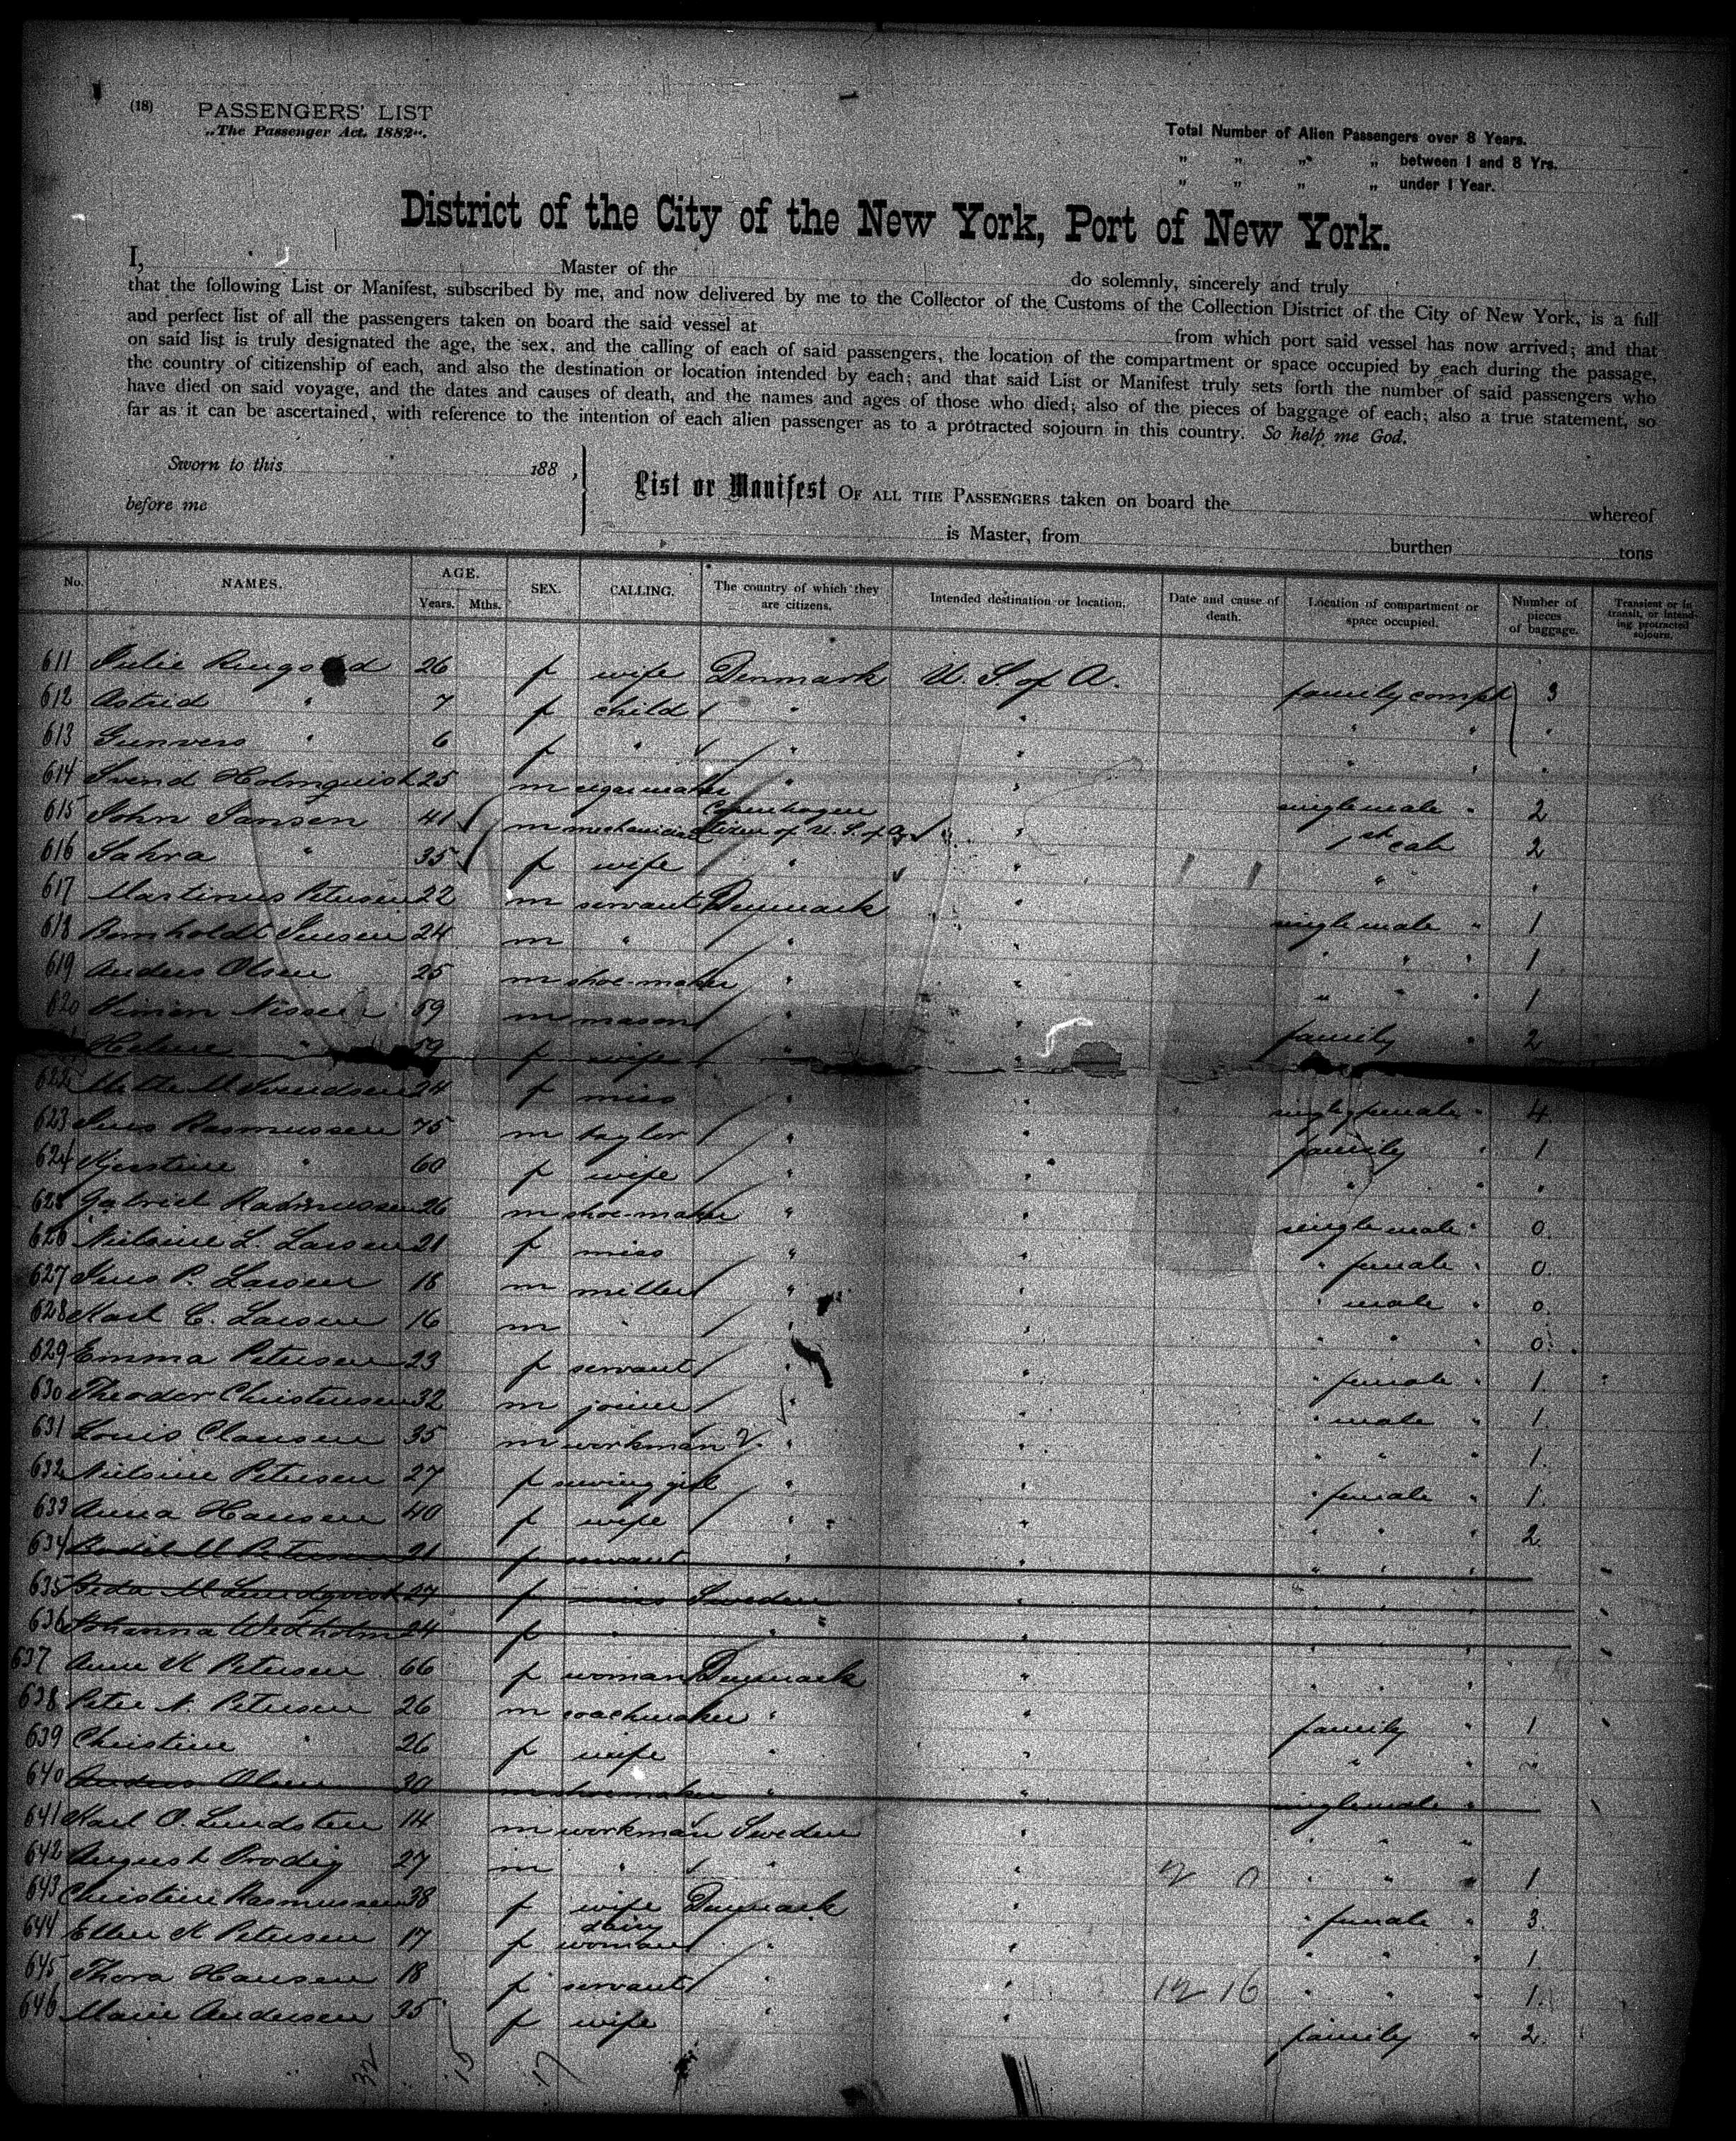 (18) PASSENGERS' LIST
„The Passenger Act. 1882“.
Total Number of Alien Passengers over 8 Years.
„ „ „ „ between 1 and 8 Yrs.
„ „ „ „ under 1 Year.
District of the City of the New York, Port of New York.
I, Master of the do solemnly, sincerely and truly
that the following List or Manifest, subscribed by me, and now delivered by me to the Collector of the Customs of the Collection District of the City of New York, is a full
and perfect list of all the passengers taken on board the said vessel at from which port said vessel has now arrived; and that
on said list is truly designated the age, the sex, and the calling of each of said passengers, the location of the compartment or space occupied by each during the passage,
the country of citizenship of each, and also the destination or location intended by each; and that said List or Manifest truly sets forth the number of said passengers who
have died on said voyage, and the dates and causes of death, and the names and ages of those who died; also of the pieces of baggage of each; also a true statement, so
far as it can be ascertained, with reference to the intention of each alien passenger as to a protracted sojourn in this country. So help me God.
Sworn to this 188 ,
before me
List or Manifest OF ALL THE PASSENGERS taken on board the whereof
is Master, from burthen tons
No. NAMES. AGE. Years. Mths. SEX. CALLING. The country of which they are citizens. Intended destination or location. Date and cause of death. Location of compartment or space occupied. Number of pieces of baggage. Transient or in transit, or intending protracted sojourn.
611 Julie 26 f wife Denmark U. S. of A. family compt 3
612 Astrid " 7 f child " " " "
613 " 6 f " " " " "
614 Svend Holmquist 25 m cigarmaker " " single male " 2
615 John Jansen 41 m mechanician Copenhagen citizen of U. S. of A. " 1st cab 2
616 Sahra " 35 f wife " " " "
617 Martinus Petersen 22 m servant Denmark " single male " 1
618 Bornholdt Jensen 24 m " " " " " " 1
619 Anders Olsen 25 m shoe-maker " " " " " 1
620 Nissen 59 m mason " " family " 2
Helene " 59 f wife " "
622 Mette M Svendsen 24 f miss " " single female " 4
623 Jens Rasmussen 75 m taylor " " family " 1
624 Kjerstine " 60 f wife " " " " "
625 Gabriel Rasmussen 26 m shoe-maker " " single male " 0
626 Nielsine L. Larsen 21 f miss " " " female " 0
627 Jens P. Larsen 18 m miller " " " male " 0
628 Karl C. Larsen 16 m " " " " " " 0
629 Emma Petersen 23 f servant " " " female " 1
630 Theodor Christensen 32 m joiner " " " male " 1
631 Louis Clausen 35 m workman " " " " " 1
632 Nielsine Petersen 27 f sewing girl " " " female " 1
633 Anna Hansen 40 f wife " " " " " 2
634 Bodil M Petersen 21 f servant " " " " "
635 M Lundqvist 27 f miss Sweden " " " "
636 Johanna Wedholm 24 f " " " " " "
637 Anne K Petersen 66 f woman Denmark " " " "
638 Peter N. Petersen 26 m coachmaker " " family " 1
639 Christine " 26 f wife " " " " "
640 Anders Olsen 30 m shoemaker " " single male "
641 Karl O. Lundsten 14 m workman Sweden " " " "
642 August Prodig 27 m " " " " " " 1
643 Christine Rasmussen 38 f wife Denmark " " female " 3
644 Ellen K Petersen 17 f dairy woman " " " " " 1
645 Thora Hansen 18 f servant " " 12 16 " " " 1
646 Marie Andersen 35 f wife " " family " 2
32 15 17